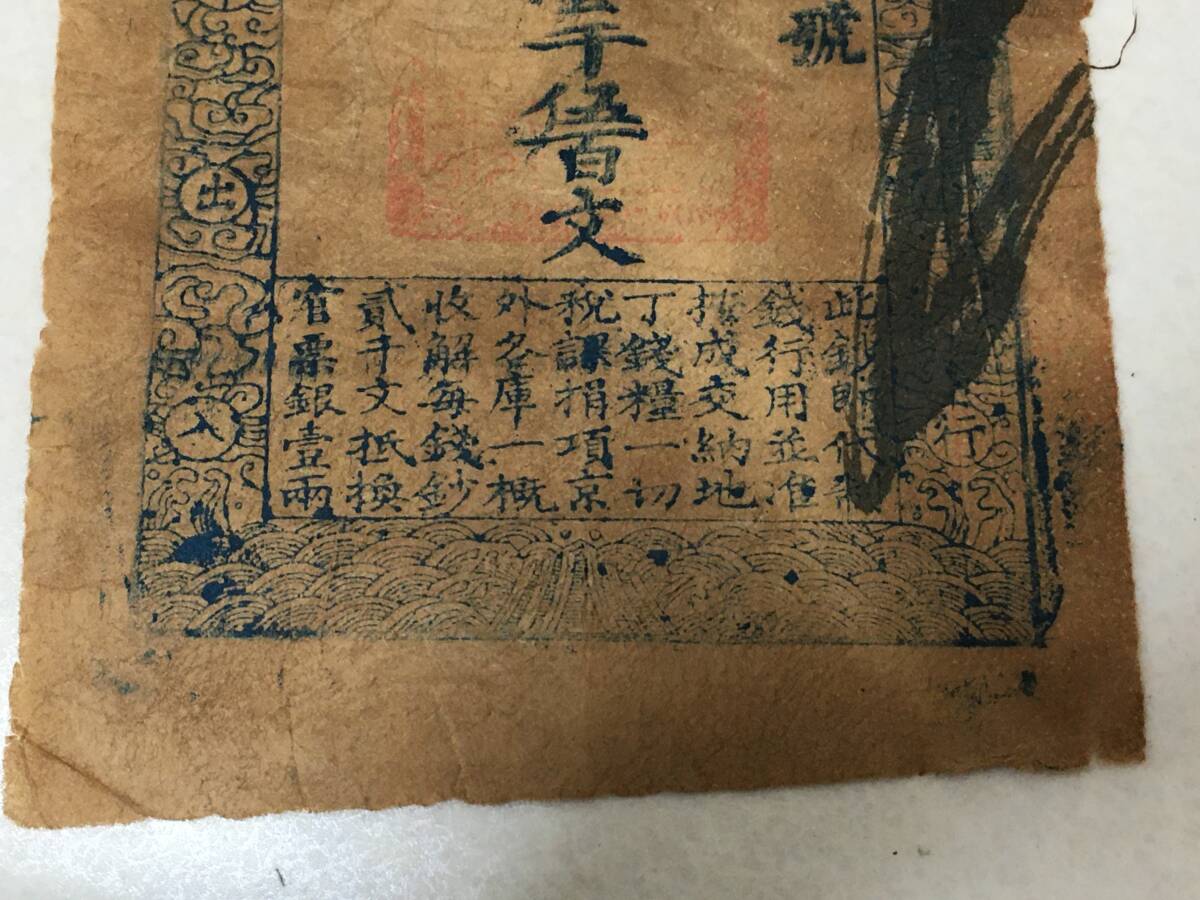 號
千伍百文
行
此鈔即代制
錢行用並准
按成交納地
丁錢糧一切
稅課捐項京
外各庫一概
收解每錢鈔
貳千文抵換
官票銀壹兩
出
入